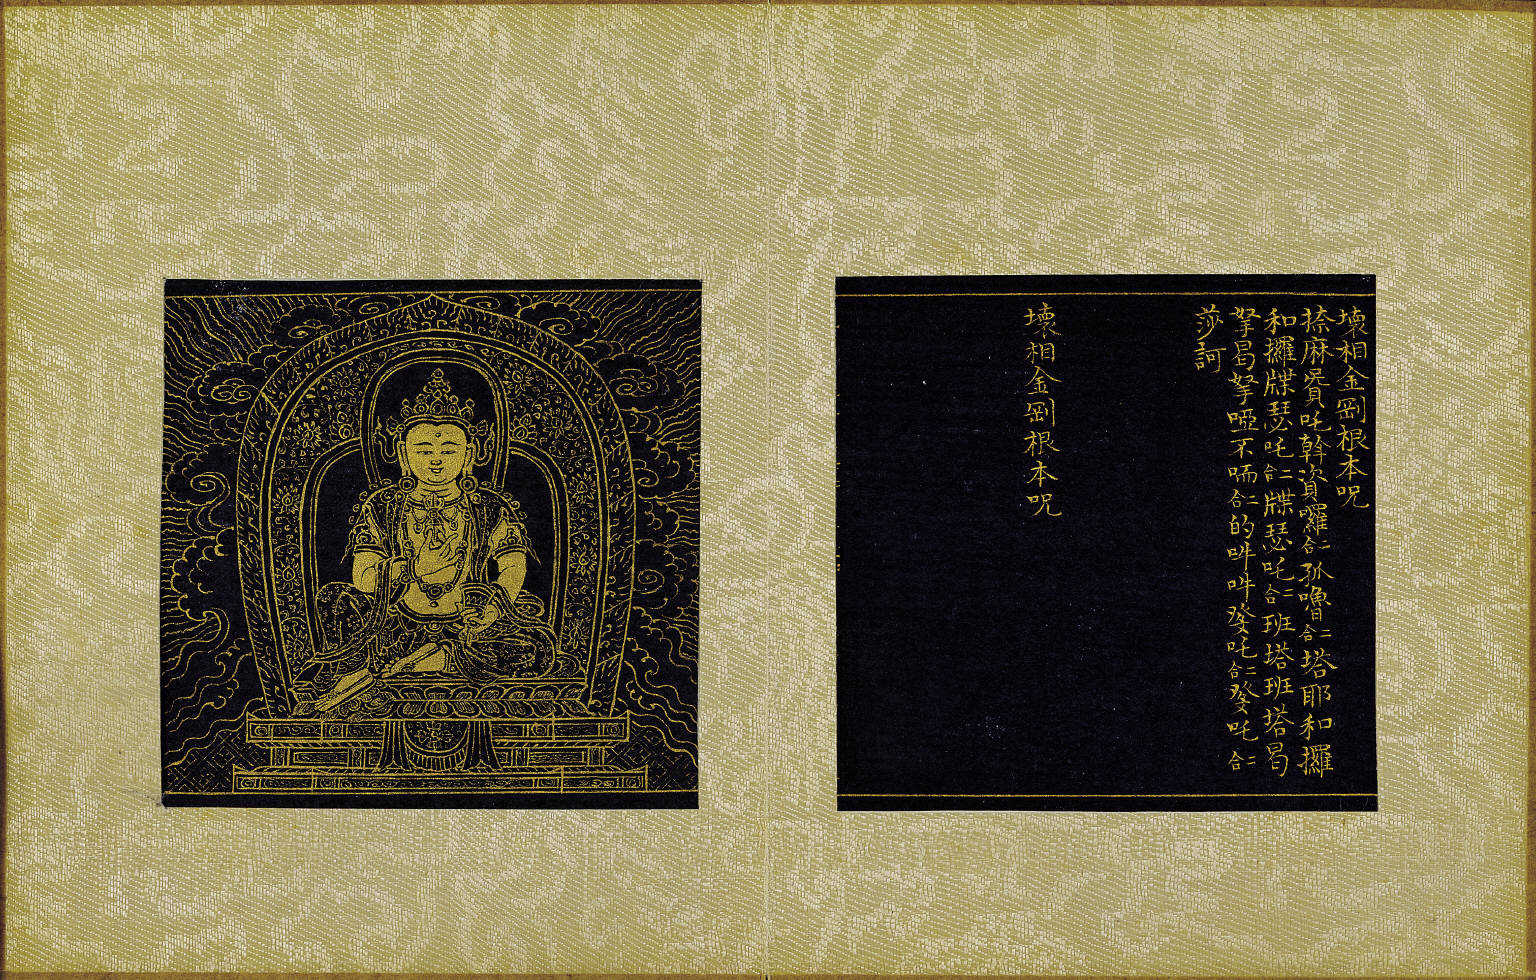 壞相金剛根本呪
捺麻㘕資吒斡資囉二合孤嚕二合塔耶和攞
和攞牒瑟吒二合牒瑟吒二合班塔班塔曷
拏曷拏啞不㖠二合的吽吽癹吒二合癹吒二合
莎訶
壞相金剛根本呪